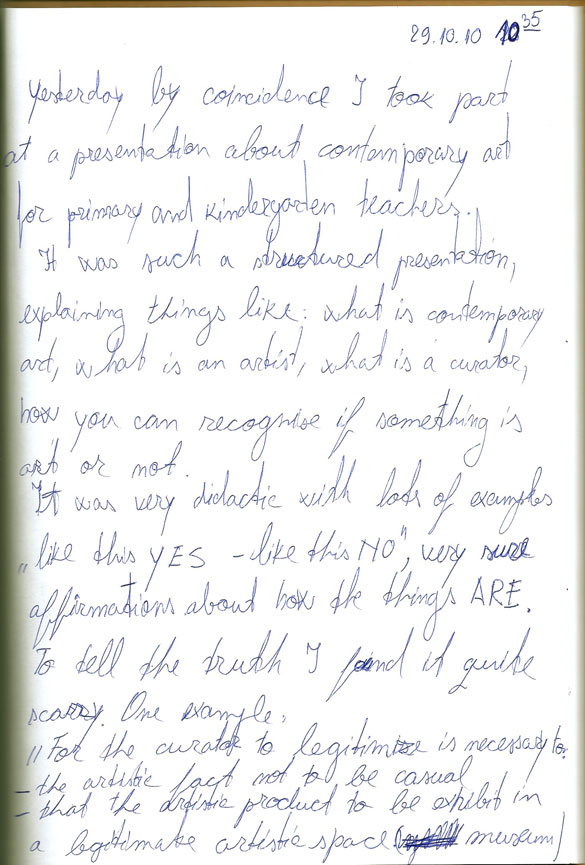 29.10.10 10 35
Yesterday by coincidence I took part
at a presentation about contemporary art
for primary and kindergarden teachers.
It was such a structured presentation,
explaining things like: what is contemporary
art, what is an artist, what is a curator,
how you can recognise if something is
art or not.
It was very didactic with lots of examples
„like this YES - like this NO", very sure
affirmations about how the things ARE.
To tell the truth I find it quite
scarry. One example:
"For the curator to legitimize is necessary to:
- the artistic fact not to be casual
- that the artistic product to be exhibit in
a legitimate artistic space museum)